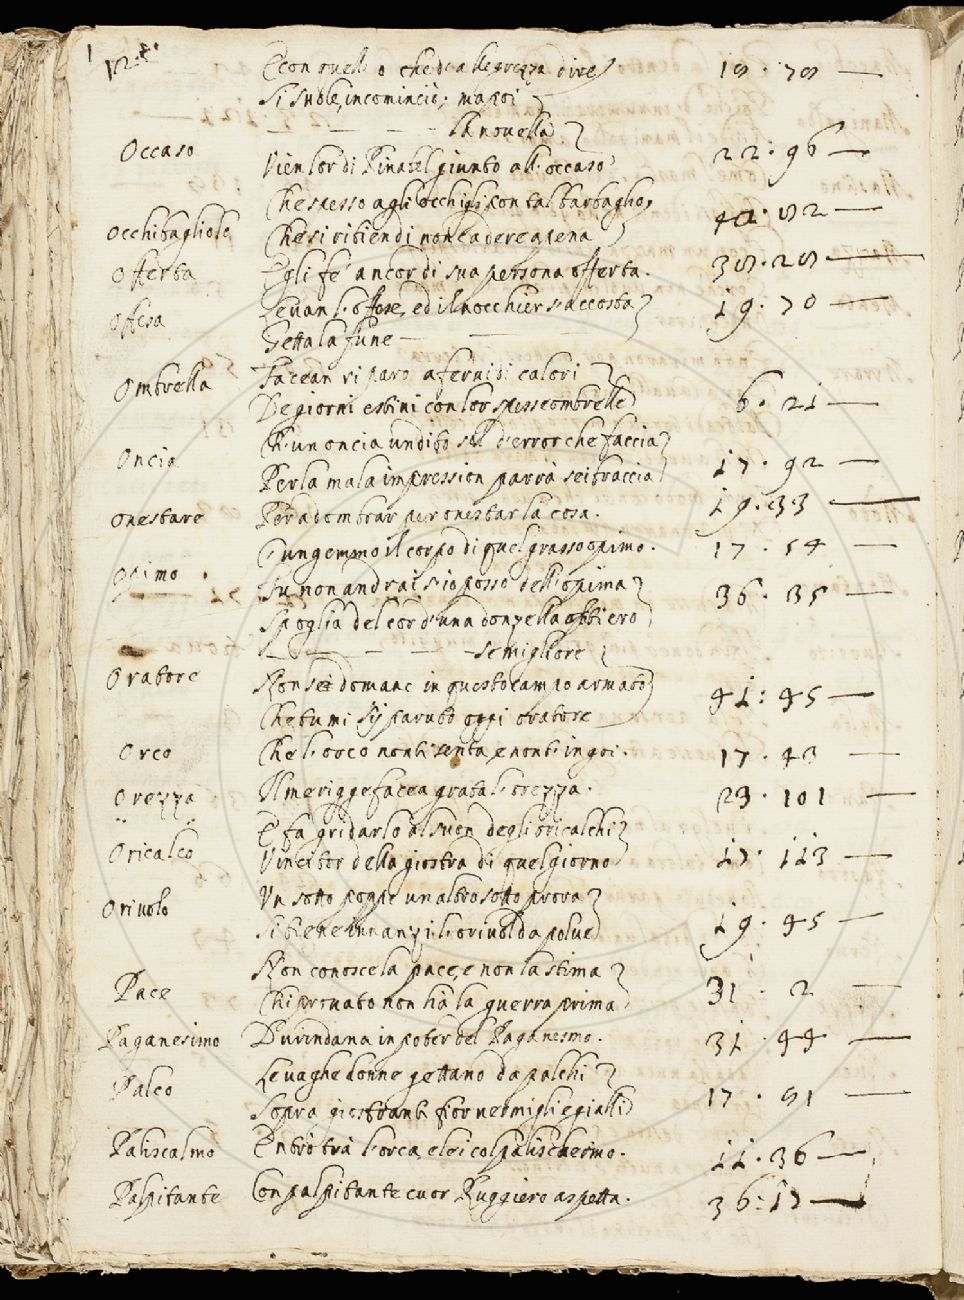 E con quell o che di allegrezza dire 18 · 78
Si suole, incominciò; ma poi
la novella
Occaso Vien lor di Pinabel giunto all' occaso 22 · 96
Che spesso agli occhi gli pon tal barbaglio
Occhibagliolo Che si ritien di non cadere a pena 42 · 82
Offerta Egli fe' ancor di sua persona offerta. 38 · 28
Offesa Levan l' offese, ed il nocchier s' accosta 19 · 70
Getta la fune
Facean riparo a fervidi calori
Ombrella De giorni estivi con lor spesse ombrelle 6 · 21
Oncia Ch' un oncia un dito sol d' error che faccia
Per la mala impression parrà sei braccia 17 · 92
onestare Per adombrar per onestar la cosa. 19 · 33
S' ungemmo il corpo di quel grasso opimo. 17 · 54
Opimo Tu non andrai s' io posso dell' opima 36 · 35
Spoglia del cor d' una donzella altiero
se migliore
Oratore Non sei domane in questo campo armato
Che tu mi sij paruto oggi oratore 41 : 45
Orco Che l' orco non ti senta e non t' ingoi. 17 · 43
Orezza Il meriggie facea grato l' orezza. 23 · 101
Oricalco E fa gridarlo al suon degli oricalchi
Vincitor della giostra di quel giorno 17 · 113
Orivolo Un sotto poggie un altro sotto prova
Si tiene innanzi l' orivol da polve 19 · 45
Pace Non conosce la pace, e non la stima
Chi provato non hà la guerra prima 31 · 2
Paganesimo Durindana in poter del Paganesmo. 31 · 44
Palco Le vaghe donne gettano da palchi
Sopra giostranti fior vermigli e gialli 17 · 81
Paliscalmo Entrò trà l' orca, e lei col palischermo. 11 · 36
Palpitante Con palpitante cuor Ruggiero aspetta. 36 : 17